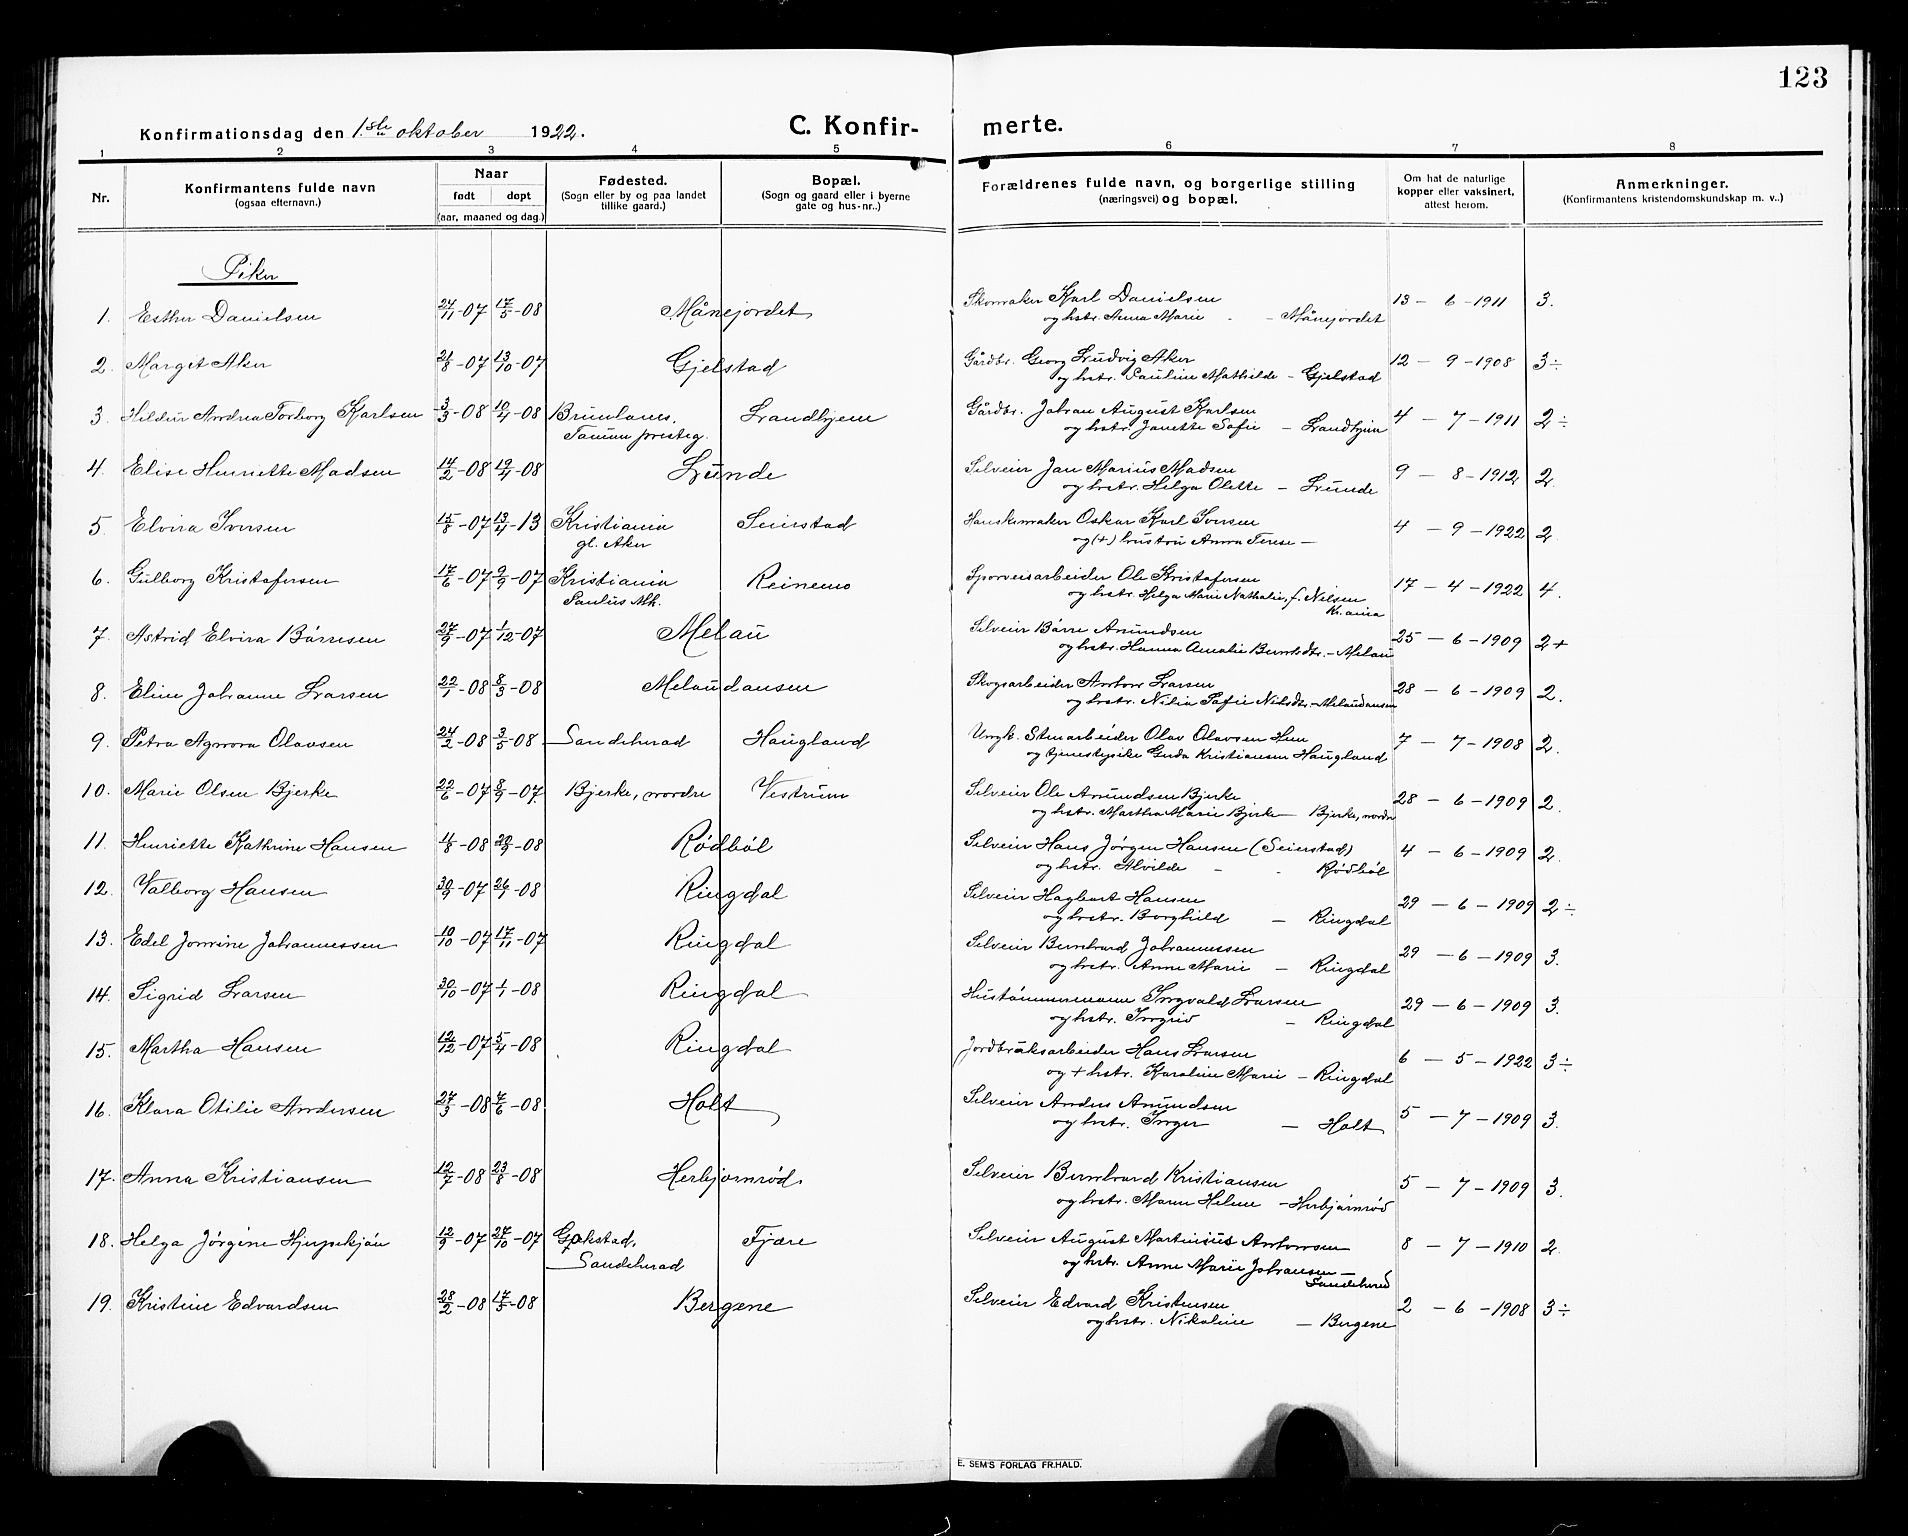 123
Konfirmationsdag den 1.ste oktober 1922.
C. Konfirmerte.
1 2 3 4 5 6 7 8
Nr.
Konfirmantens fulde navn
(ogsaa efternavn.)
Naar
født døpt
(aar, maaned og dag.)
Fødested.
(Sogn eller by og paa landet
tillike gaard.)
Bopæl.
(Sogn og gaard eller i byerne
gate og hus-nr..)
Forældrenes fulde navn, og borgerlige stilling
(næringsvei) og bopæl.
Om hat de naturlige
kopper eller vaksinert,
attest herom.
Anmerkninger.
(Konfirmantens kristendomskundskap m. v..)
Piker
1. Esther Danielsen 24/11-07 17/5-08 Månejordet Skomaker Karl Danielsen 13-6-1911 3.
og hstr. Anna Marie - Månejordet
2. Margit Aker 21/8-07 13/10-07 Gjelstad Gårdbr. Georg Ludvig Aker 12-9-1908 3÷
og hstr. Pauline Mathilde - Gjelstad
3. Hildur Andrea Torborg Karlsen 3/3-08 19/4-08 Brunlanes, Landhjem Gårdbr. Johan August Karlsen 4-7-1911 2÷
Tanum presteg. og hstr. Janette Sofie - Landhjem
4. Elise Henriette Madsen 14/2-08 19/4-08 Lunde Selveier Jan Marius Madsen 9-8-1912 2.
og hstr. Helga Olette - Lunde
5. Elvira Iversen 15/8-07 13/4-13 Kristiania Seierstad Hanskemaker Oskar Karl Iversen 4-9-1922 2.
gl. Aker og (+) hustru Anna Terese -
6. Gulborg Kristofersen 17/6-07 9/9-07 Kristiania Reinemo Sporveisarbeider Ole Kristofersen 17-4-1922 4.
Paulus Mh. og hstr. Helga Marie Nathalie, f. Nilsen
Kr.ania
7. Astrid Elvira Børresen 27/9-07 1/12-07 Melau Selveier Børre Amundsen 25-6-1909 2+
og hstr. Hanna Amalie Berntsdtr. - Melau
8. Eline Johanne Larsen 22/1-08 8/3-08 Melaudansen Skogsarbeider Anton Larsen 28-6-1909 2.
og hstr. Nilia Sofie Nilsdtr. - Melaudansen
9. Petra Agnora Olavsen 24/2-08 3/5-08 Sandeherad Haugland Ungk. Stenarbeider Olav Olavsen Hem 7-7-1908 2.
og tjenestepike Guda Kristiansen Haugland
10. Marie Olsen Bjerke 22/6-07 8/9-07. Bjerke, nordre Vestrum Selveier Ole Amundsen Bjerke 28-6-1909 2.
og hstr. Martha Marie Bjerke - Bjerke, nordre
11. Henriette Kathrine Hansen 4/8-08 20/9-08 Rødbøl Selveier Hans Jørgen Hansen (Seierstad) 4-6-1909 2.
og hstr. Alvilde - Rødbøl
12. Valborg Hansen 30/9-07 26/1-08 Ringdal Selveier Hagbart Hansen 29-6-1909 2÷
og hstr. Borghild - Ringdal
13. Edel Jonnine Johannessen 10/10-07 17/11-07 Ringdal Selveier Bernhard Johannessen 29-6-1909 3.
og hstr. Anne Marie - Ringdal
14. Sigrid Larsen 30/10-07 1/1-08 Ringdal Hustømmermann Ingvald Larsen 29-6-1909 3.
og hstr. Ingrid - Ringdal
15. Martha Hansen 12/12-07 5/4-08 Ringdal Jordbruksarbeider Hans Larsen 6-5-1922 3÷
og + hstr. Karoline Marie - Ringdal
16. Klara Otilie Andersen 27/3-08 7/6-08 Holt Selveier Anders Amundsen 5-7-1909 3.
og hstr. Inger - Holt
17. Anna Kristiansen 12/7-08 23/8-08 Herbjørnrød Selveier Bernhard Kristiansen 5-7-1909 3.
og hstr. Maren Helene - Herbjørnrød
18. Helga Jørgine Hjerpekjøn 12/9-07 27/10-07 Gokstad, Fjære Selveier August Martinius Antonsen 8-7-1910 2.
Sandeherad og hstr. Anne Marie Johansen -
Sandeherad
19. Kristine Edvardsen 28/2-08 17/5-08 Bergene Selveier Edvard Kristensen 2-6-1908 3÷
og hstr. Nikoline - Bergene
E. SEM'S FORLAG FR.HALD.